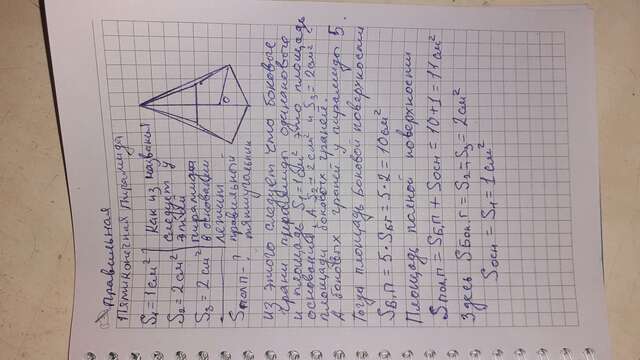 Правильная
Пятиконечная пирамида
S₁ = 1 см² | Как из названия
S₂ = 2 см² | следует у
этой
S₃ = 2 см² | пирамиды
в основании
лежит
Sполп - ? | правильный
пятиугольник
Из этого следует что боковые
грани пирамиды одинакового
и площадь S₁=1см² это площадь
основания. А S₂=2см² и S₃=2см²
площади боковых граней.
А боковых граней у пирамиды 5.
Тогда площадь боковой поверхности
Sб.п = 5·Sбг = 5·2 = 10см²
Площадь полной поверхности
Sполп = Sб.п + Sосн = 10+1 = 11см²
Здесь Sбок.г = S₂=S₃ = 2см²
Sосн = S₁ = 1см²
O